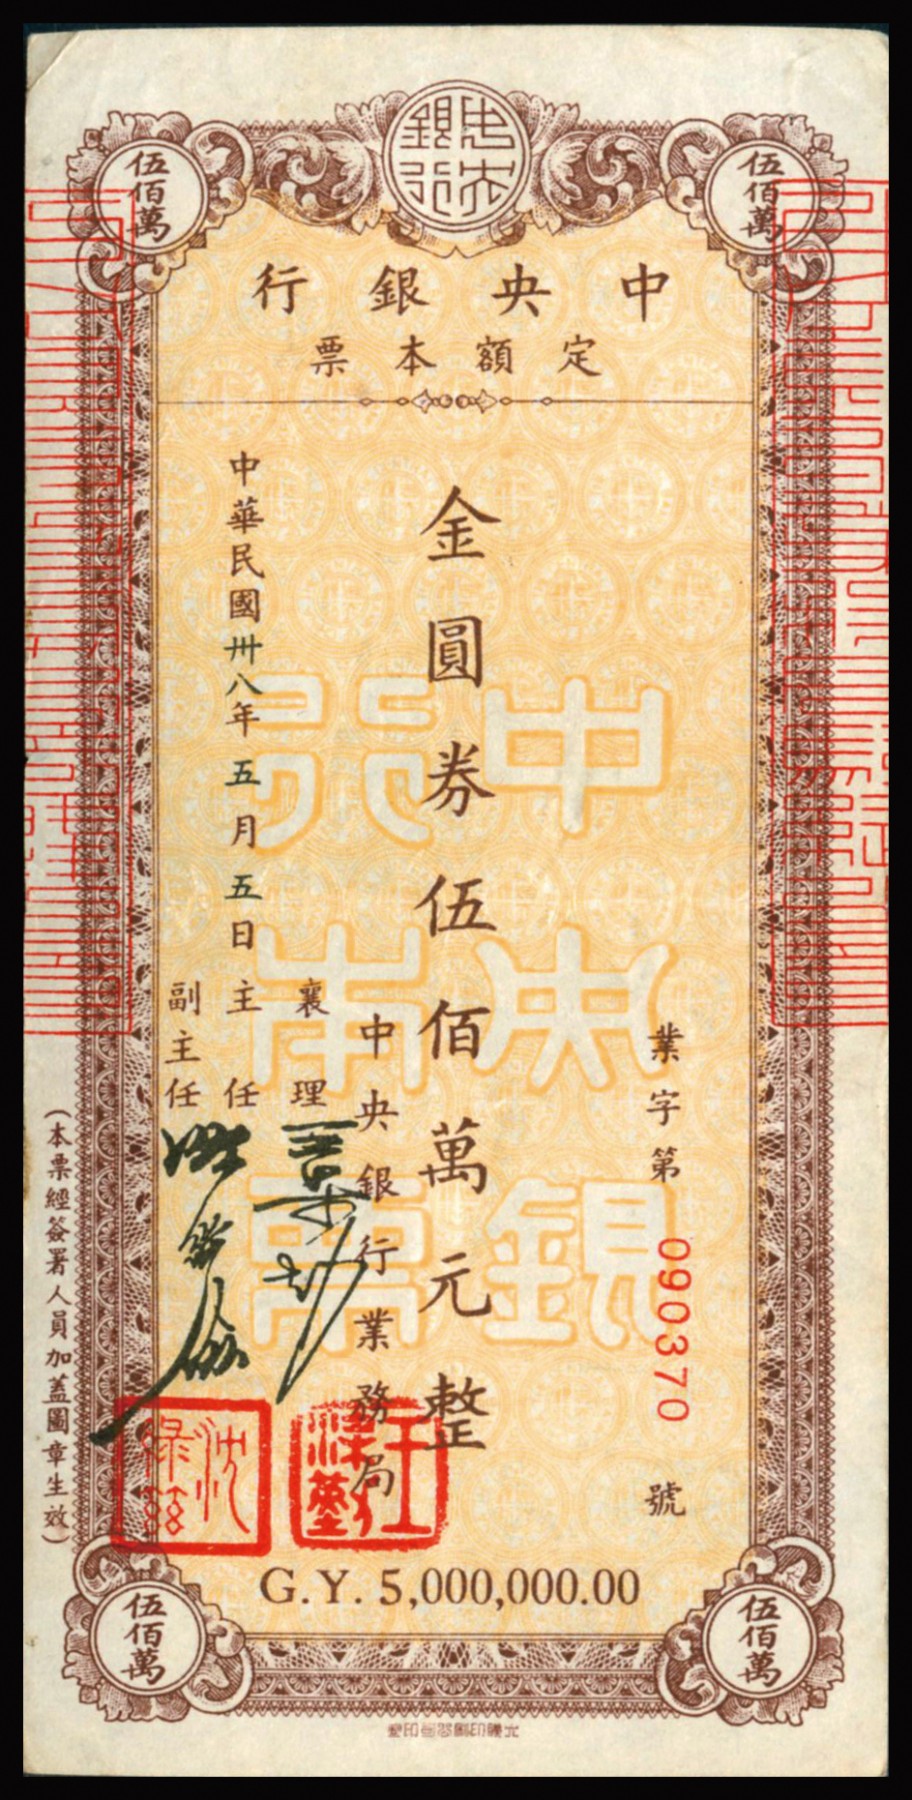 中央銀行
伍佰萬
伍佰萬
中央銀行
定額本票
業字第 090370 號
金圓券伍佰萬元整
中央銀行業務局
襄理
主任
副主任
中華民國卅八年五月五日
中央銀行本票
(本票經簽署人員加蓋圖章生效)
G.Y. 5,000,000.00
伍佰萬
伍佰萬